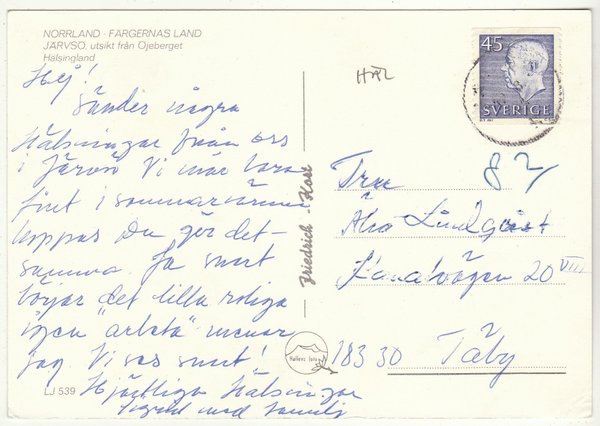 NORRLAND - FÄRGERNAS LAND
JÄRVSÖ, utsikt från Öjeberget
Hälsingland
Hej!
Sänder några
Hälsningar från oss
i Järvsö Vi mår bara
fint i sommarvärmen
hoppas Du gör det-
samma. Ja snart
börjar det lilla roliga
igen "arbeta" menar
jag. Vi ses snart!
Hjärtliga Hälsningar
Sigrid med familj
LJ 539
Friedrich - Kort
HÄL
45
SVERIGE
82
Fru
Lindqvist
20 VIII
183 30 Täby